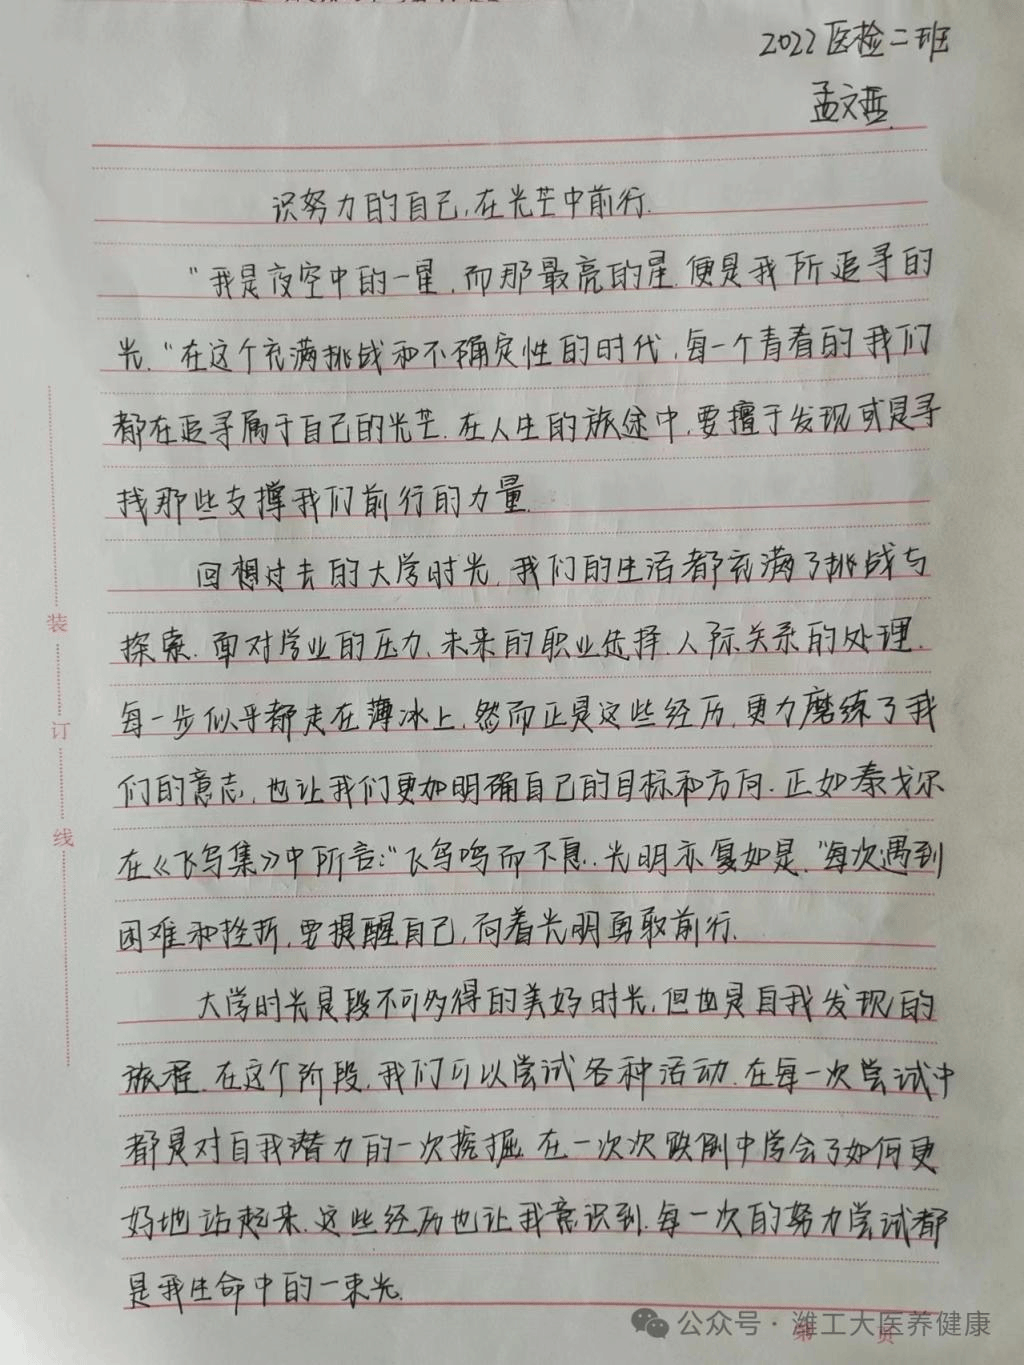 2022医检二班
孟文哲
识努力的自己,在光芒中前行.
"我是夜空中的一星,而那最亮的星.便是我所追寻的
光."在这个充满挑战和不确定性的时代,每一个青春的我们
都在追寻属于自己的光芒.在人生的旅途中,要擅于发现或是寻
找那些支撑我们前行的力量.
回想过去的大学时光,我们的生活都充满了挑战与
探索.面对学业的压力、未来的职业选择.人际关系的处理.
每一步似乎都走在薄冰上.然而正是这些经历,更力磨练了我
们的意志,也让我们更加明确自己的目标和方向.正如泰戈尔
在《飞鸟集》中所言:"飞鸟鸣而不息..光明亦复如是."每次遇到
困难和挫折,要提醒自己,向着光明勇敢前行.
大学时光是段不可多得的美好时光,但也是自我发现的
旅程.在这个阶段,我们可以尝试各种活动.在每一次尝试中
都是对自我潜力的一次挖掘.在一次次跌倒中学会了如何更
好地站起来.这些经历也让我意识到.每一次的努力尝试都
是我生命中的一束光.
装
订
线
第 页
公众号·潍工大医养健康